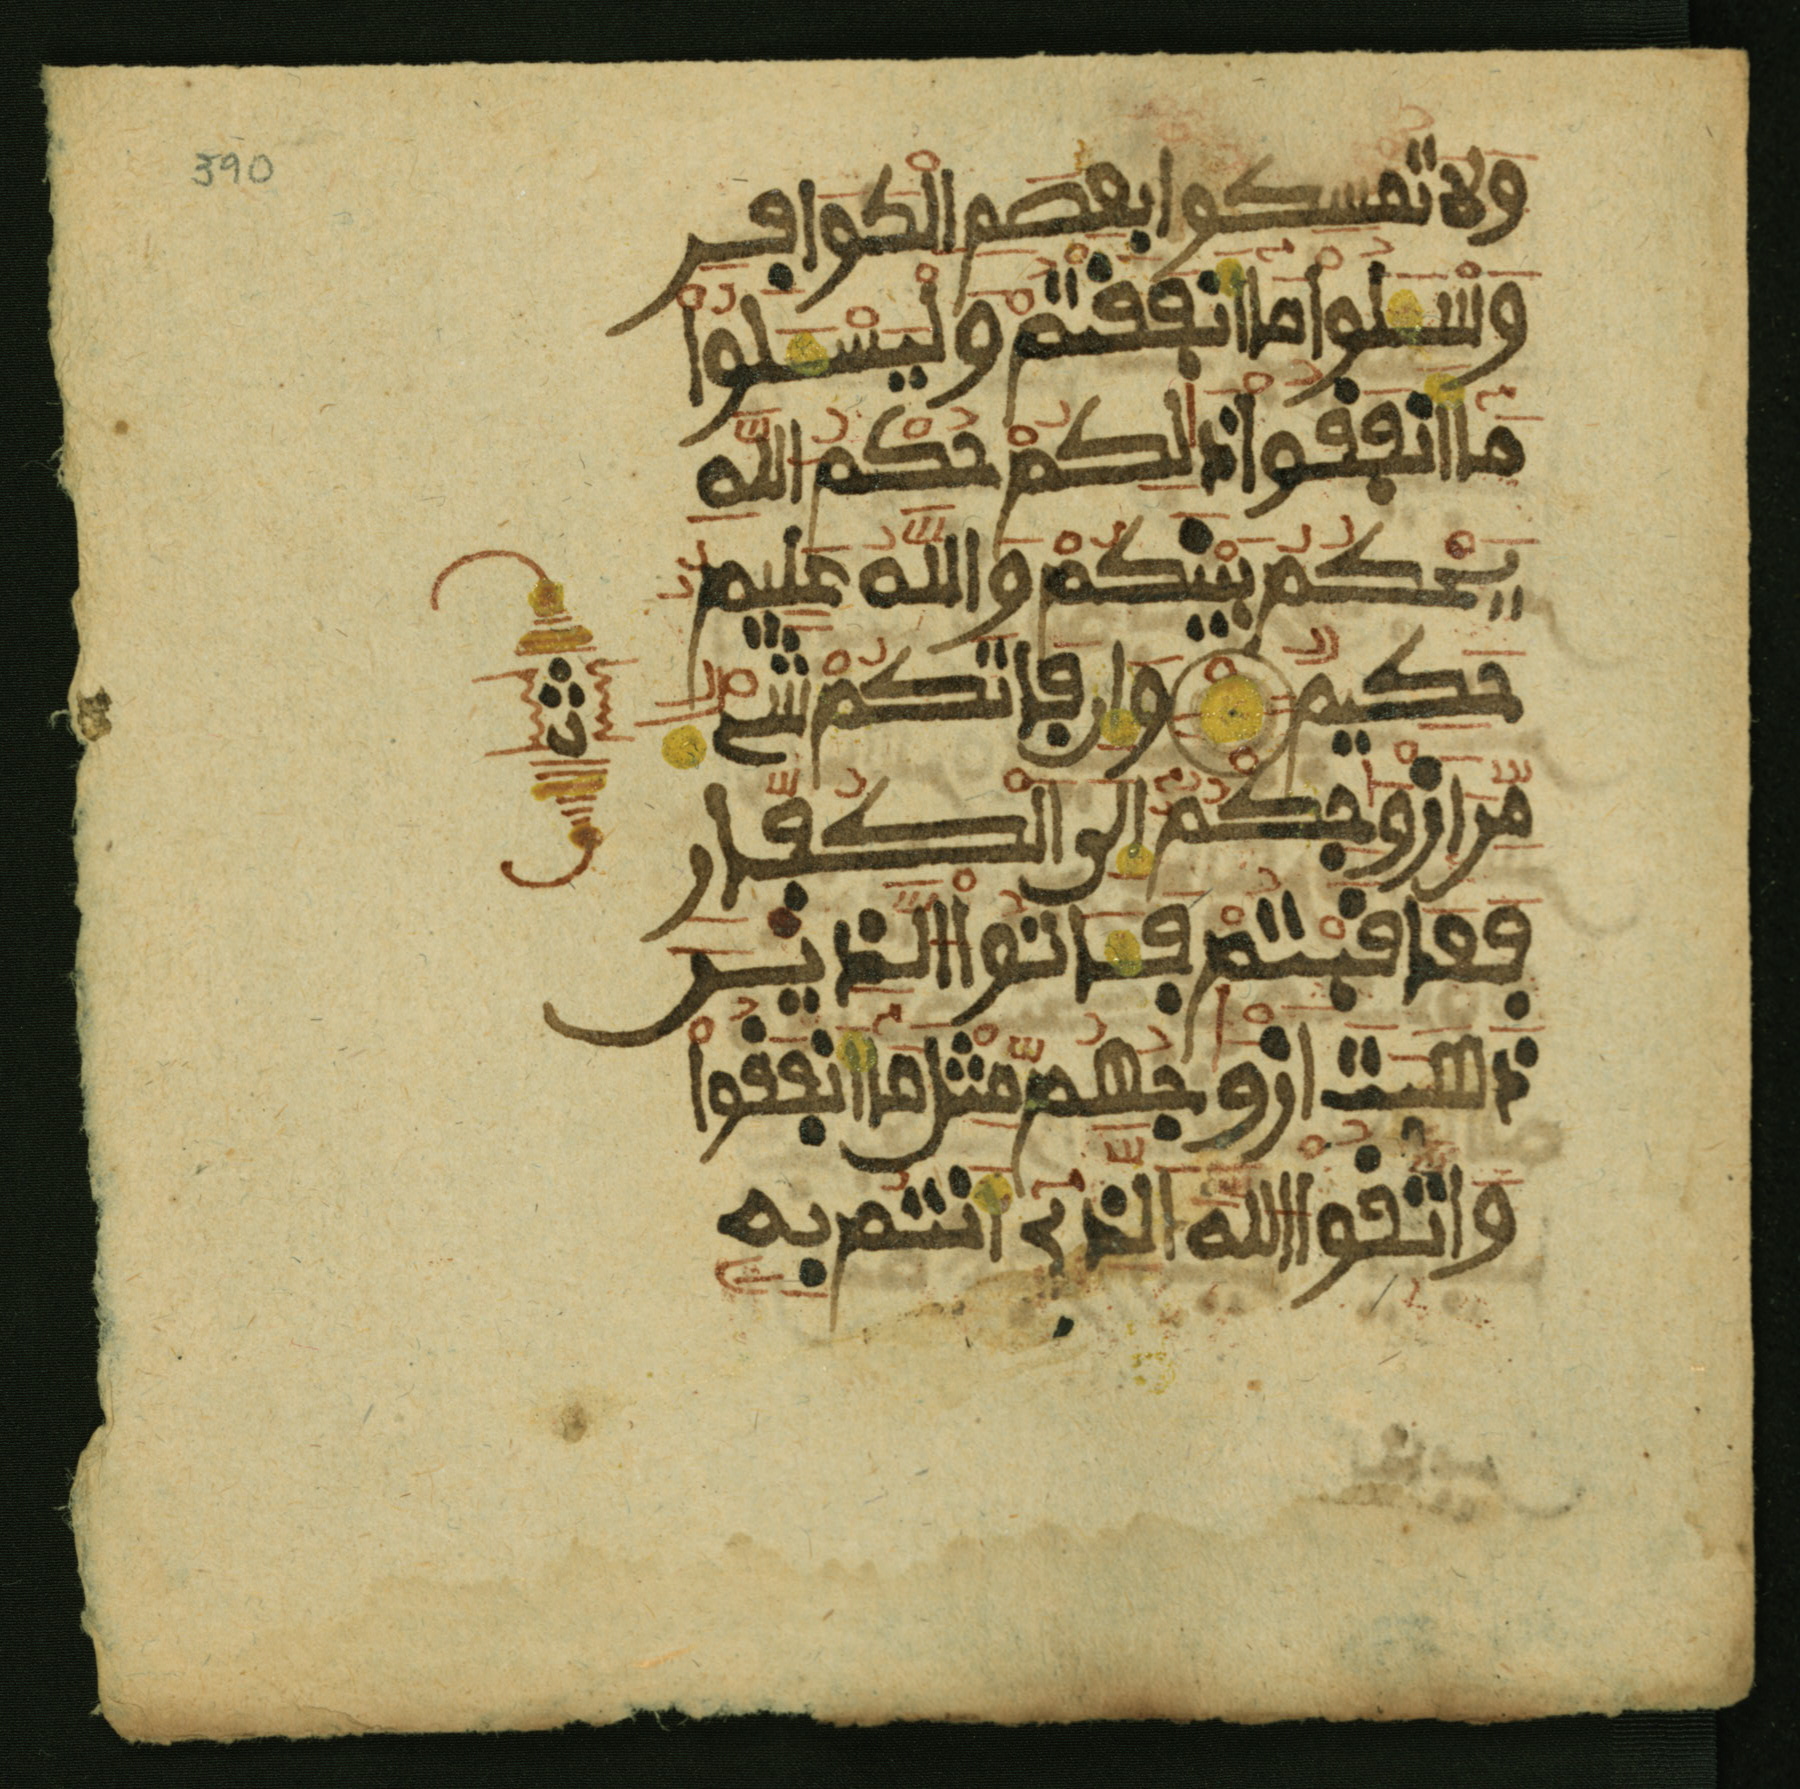 390
ولا تمسكوا بعصم الكوافر
وسـٔلوا ما انفقتم وليسـٔلوا
ما انفقوا ذالكم حكم الله
يحكم بينكم والله عليم
حكيم وان فاتكم شىء
من ازوجكم الى الكفار
فعاقبتم فـٔاتوا الذين
ذهبت ازوجهم مثل ما انفقوا
واتقوا الله الذي انتم به